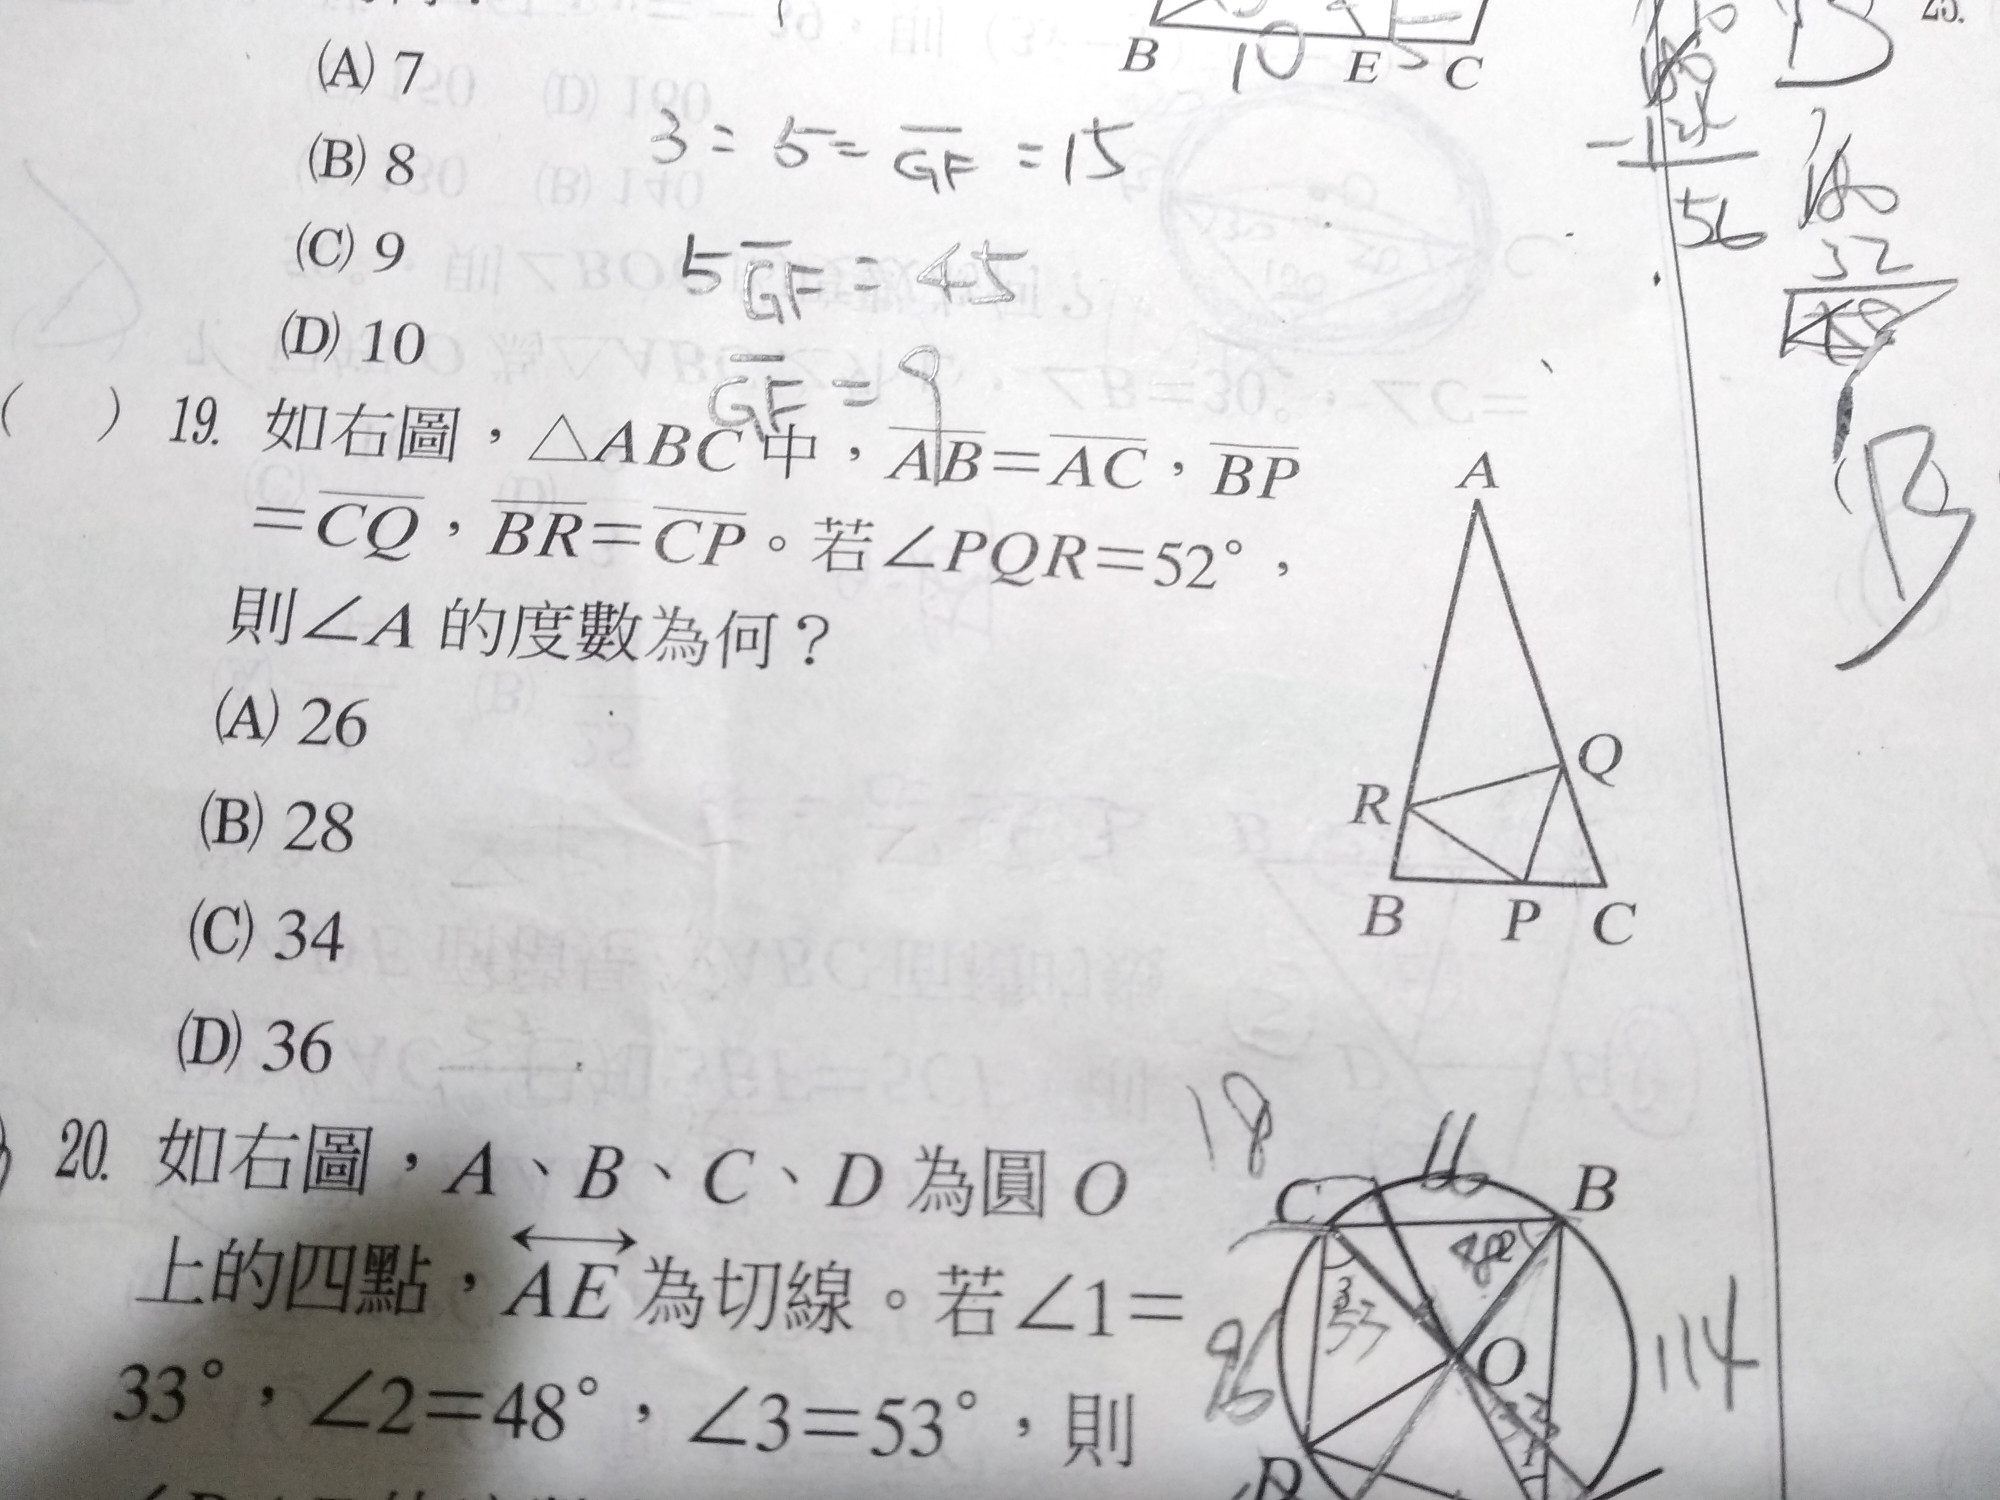 (A) 7
(B) 8
(C) 9
(D) 10
B 10 E 5 C
3 = 5 = GF = 15
5GF = 45
GF = 9
56
180
32
B
( ) 19. 如右圖，△ABC 中，AB=AC，BP
=CQ，BR=CP。若∠PQR=52°，
則∠A 的度數為何？
(A) 26
(B) 28
(C) 34
(D) 36
A
Q
R
B P C
B
20. 如右圖，A、B、C、D 為圓 O
上的四點，AE 為切線。若∠1=
33°，∠2=48°，∠3=53°，則
18
66
C B
48
53
96
O
114
D
25.